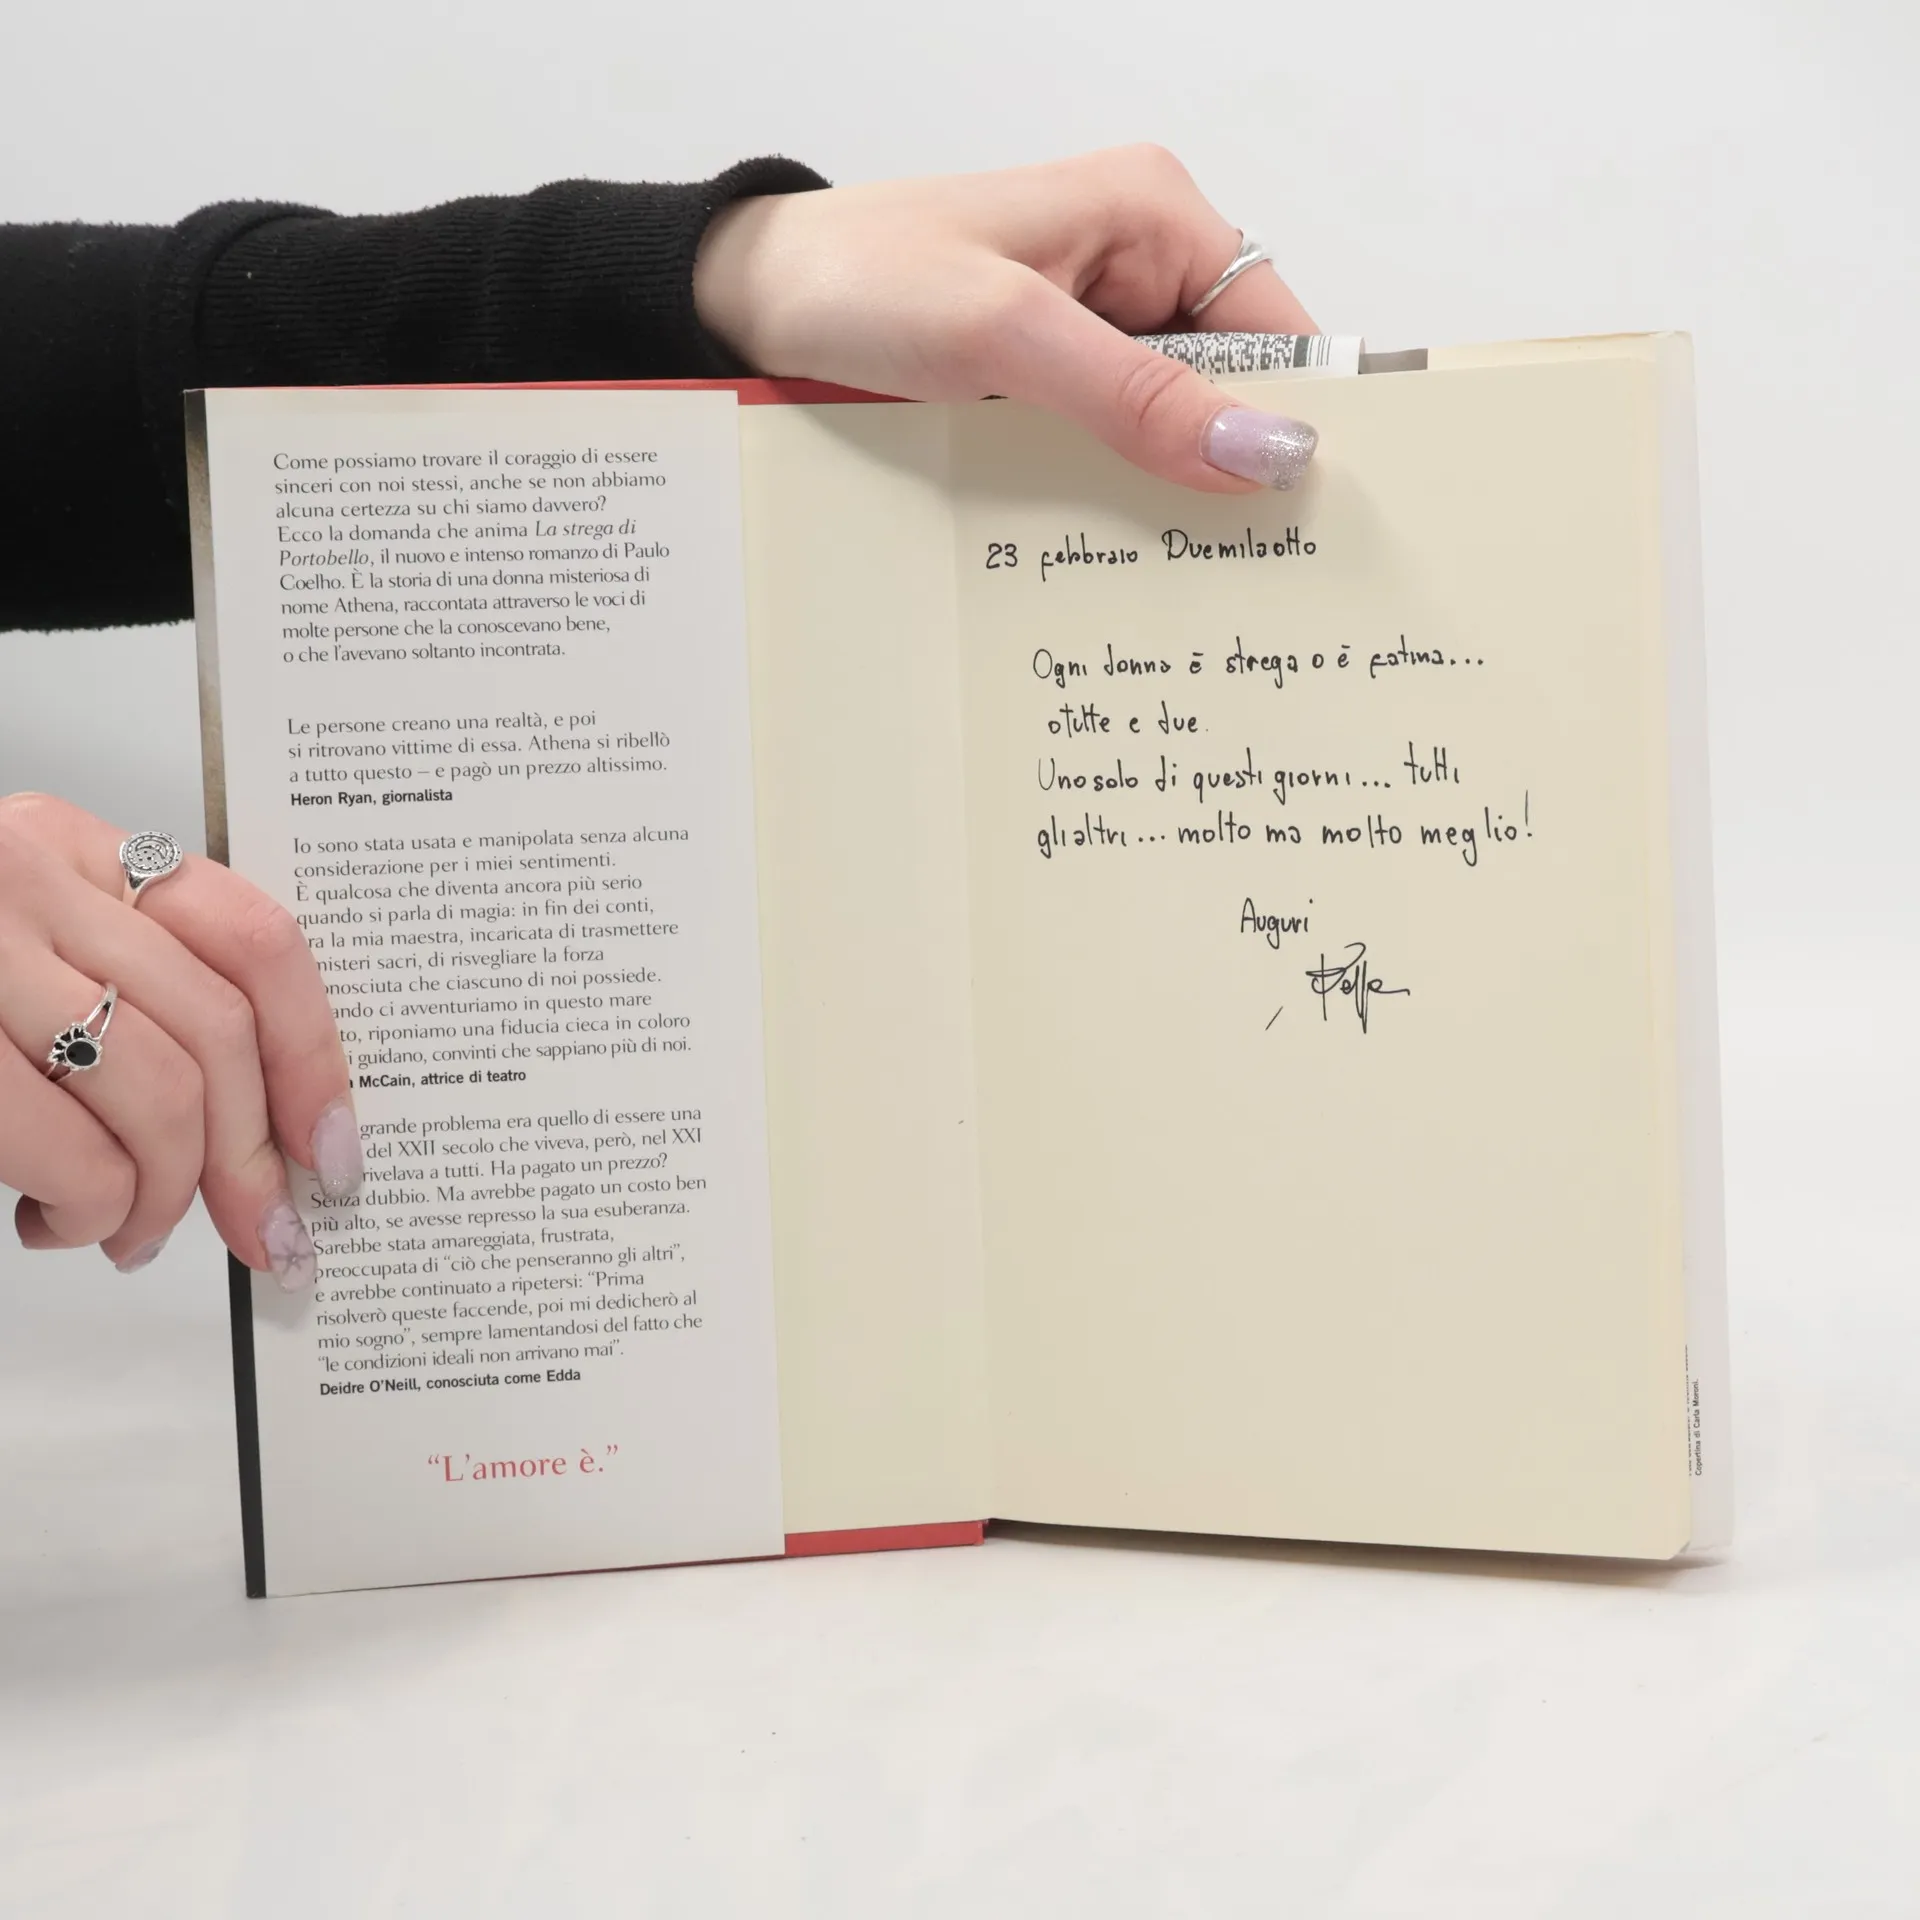 Come possiamo trovare il coraggio di essere
sinceri con noi stessi, anche se non abbiamo
alcuna certezza su chi siamo davvero?
Ecco la domanda che anima La strega di
Portobello, il nuovo e intenso romanzo di Paulo
Coelho. È la storia di una donna misteriosa di
nome Athena, raccontata attraverso le voci di
molte persone che la conoscevano bene,
o che l'avevano soltanto incontrata.
Le persone creano una realtà, e poi
si ritrovano vittime di essa. Athena si ribellò
a tutto questo – e pagò un prezzo altissimo.
Heron Ryan, giornalista
Io sono stata usata e manipolata senza alcuna
considerazione per i miei sentimenti.
È qualcosa che diventa ancora più serio
quando si parla di magia: in fin dei conti,
ra la mia maestra, incaricata di trasmettere
misteri sacri, di risvegliare la forza
onosciuta che ciascuno di noi possiede.
ando ci avventuriamo in questo mare
to, riponiamo una fiducia cieca in coloro
i guidano, convinti che sappiano più di noi.
McCain, attrice di teatro
grande problema era quello di essere una
del XXII secolo che viveva, però, nel XXI
rivelava a tutti. Ha pagato un prezzo?
Senza dubbio. Ma avrebbe pagato un costo ben
più alto, se avesse represso la sua esuberanza.
Sarebbe stata amareggiata, frustrata,
preoccupata di "ciò che penseranno gli altri",
e avrebbe continuato a ripetersi: "Prima
risolverò queste faccende, poi mi dedicherò al
mio sogno", sempre lamentandosi del fatto che
"le condizioni ideali non arrivano mai".
Deidre O'Neill, conosciuta come Edda
"L'amore è."
23 febbraio Duemilaotto
Ogni donna è strega o è fatina...
o tutte e due.
Uno solo di questi giorni... tutti
gli altri... molto ma molto meglio!
Auguri
Copertina di Carla Moroni.